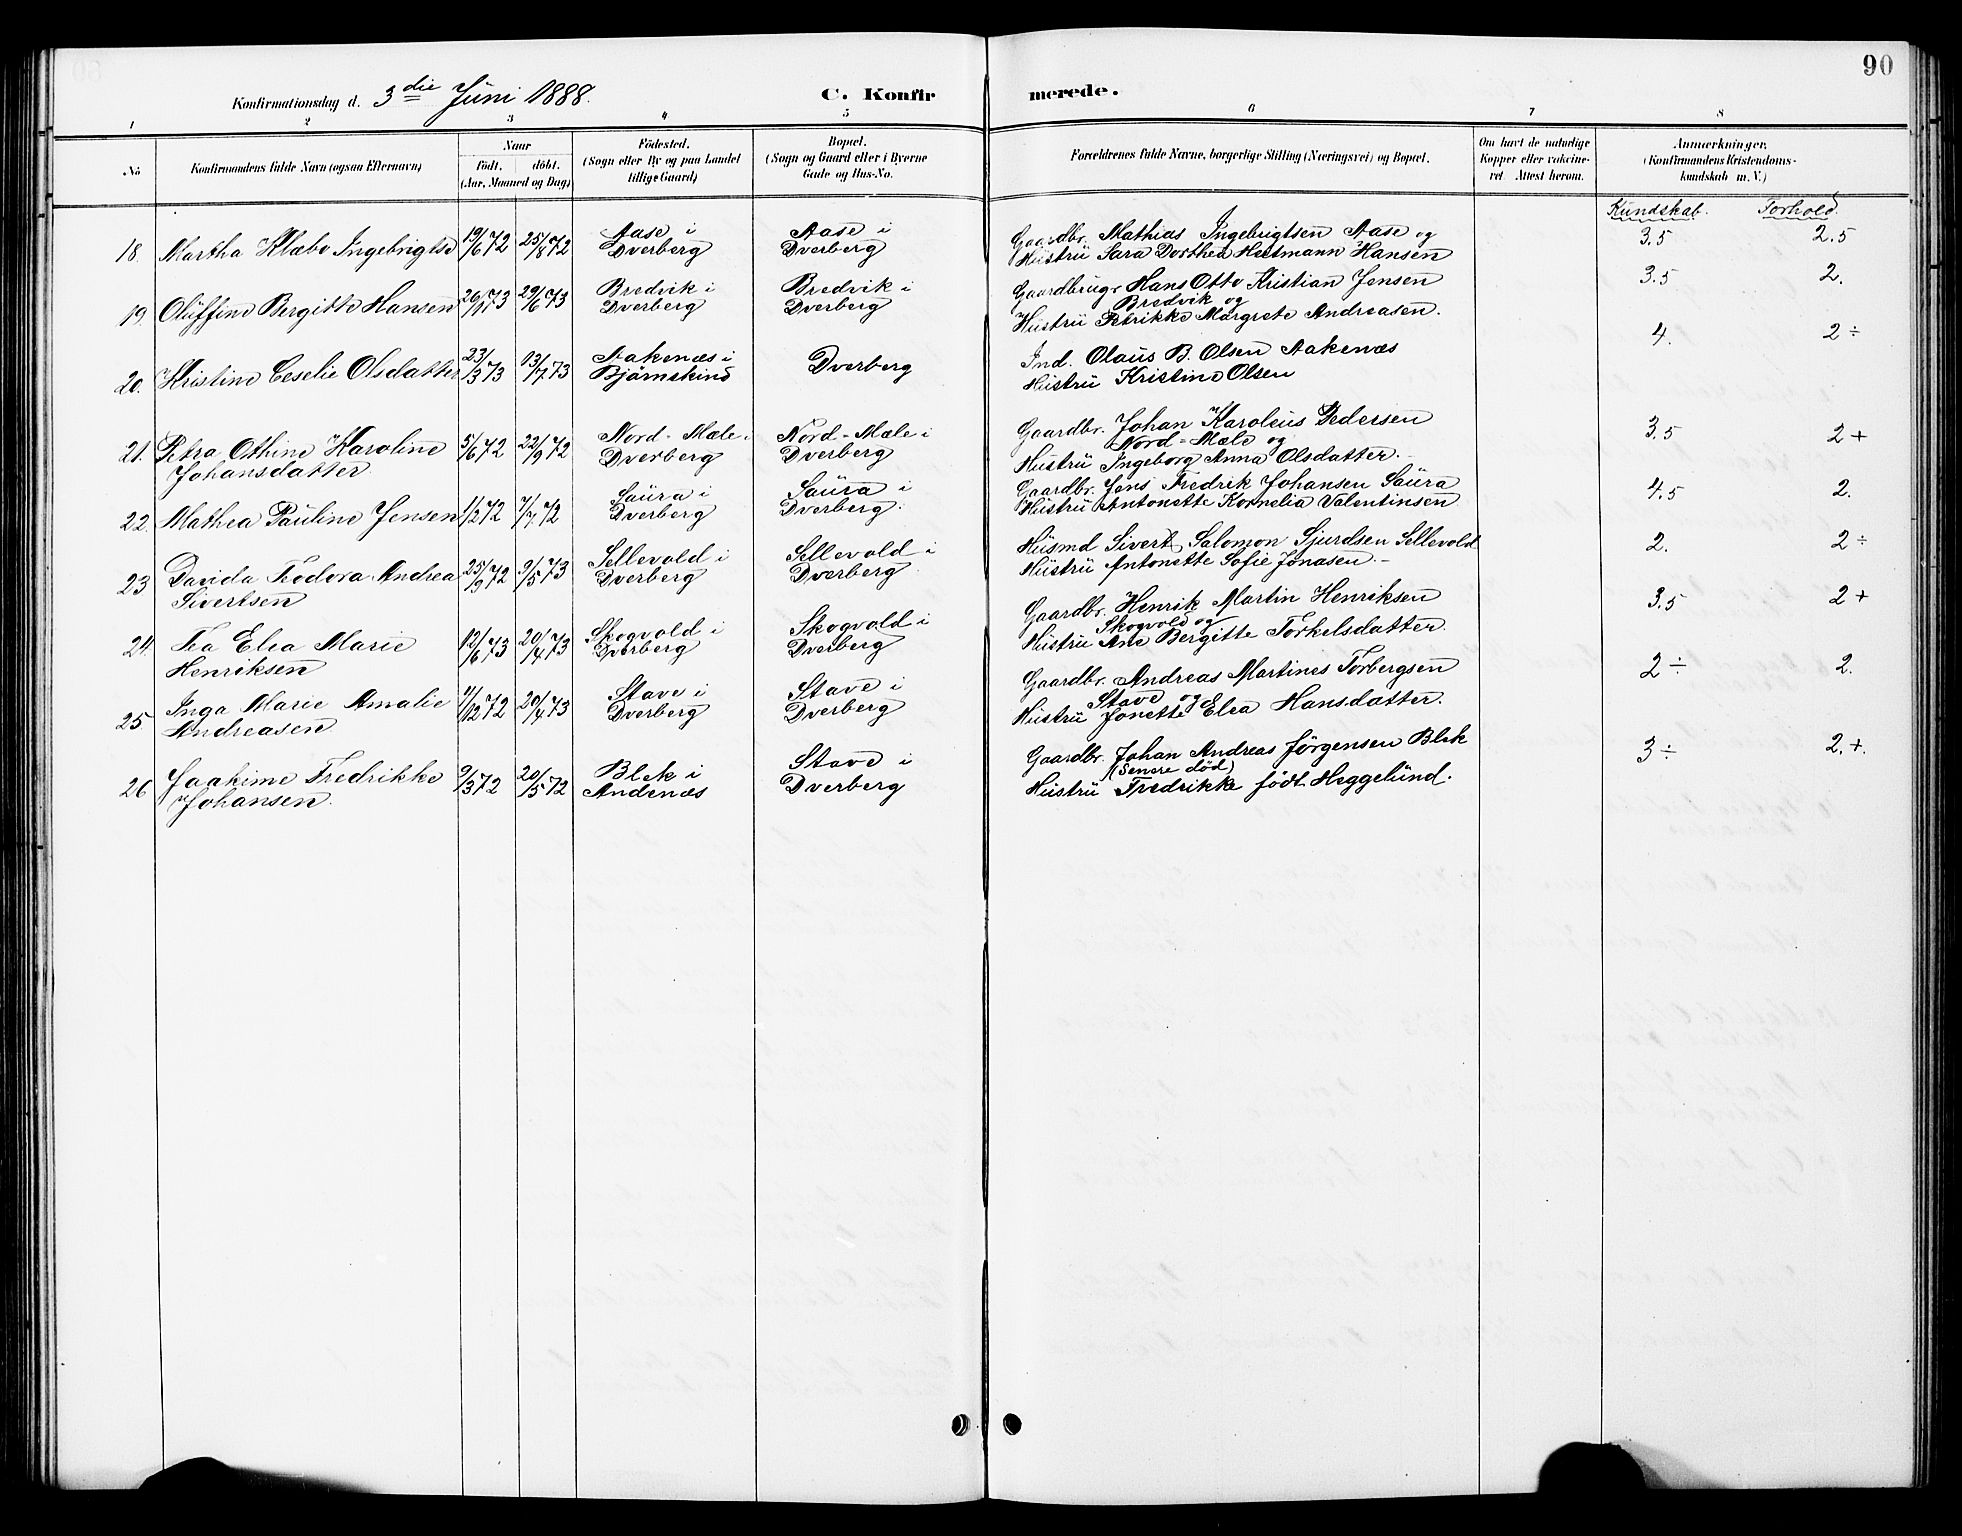 90
Konfirmationsdag d. 3die Juni 1888. C. Konfirmerede.
1 2 3 4 5 6 7 8
No
Konfirmandens fulde Navn (ogsaa Efternavn)
Naar
födt. döbt.
(Aar, Maaned og Dag)
Födested.
(Sogn eller By og paa Landet
tillige Gaard)
Bopæl.
(Sogn og Gaard eller i Byerne
Gade og Hus-No.
Forældrenes fulde Navne, borgerlige Stilling (Næringsvei) og Bopæl.
Om havt de naturlige
Kopper eller vaksine-
ret Attest herom.
Anmerkninger.
(Konfirmandens Kristendoms-
kundskab m. V.)
Kundskab. Forhold.
18. Martha Klæbo Ingebrigtse 19/6 72 25/8 72 Aase i Dverberg Aase i Dverberg Gaardbr. Mathias Ingebrigtsen Aase og 3.5 2.5
Hustrü Sara Dorthea Hestmann Hansen
19. Olüffine Bergitte Hansen 26/1 73 29/6 73 Bredvik i Dverberg Bredvik i Dverberg Gaardbrug. Hans Otto Kristian Jensen 3.5 2.
Bredvik og
Hustrü Petrikke Margrete Andreasen.
20. Kristine Ceselie Olsdatter 23/3 73 13/7 73 Aakenæs i Bjørnskind Dverberg Ind. Olaus B. Olsen Aakenæs 4. 2 ÷
Hüstrü Kristine Olsen
21. Petra Othine Karoline 5/6 72 22/9 72 Nord-Mæle i Dverberg Nord-Mæle i Dverberg Gaardbr. Johan Karoleus Pedersen 3.5 2+
Johansdatter
Nord-Mæle og
Hüstrü Ingeborg Anna Olsdatter.
22. Mathea Pauline Jensen 1/2 72 7/7 72 Saüra i Dverberg Saüra i Dverberg. Gaardbr. Jens Fredrik Johansen Saüra 4.5 2.
Hüstrü Antonette Kornelia Valentinsen.
23 Davida Teodora Andrea 25/9 72 9/5 73 Sellevold i Dverberg Sellevold i Dverberg Hüsmd Sivert Salomon Sjurdsen Sellevold 2. 2 ÷
Sivertsen
Hüstrü Antonette Sofie Jonasen.-
24. Tea Elea Marie 12/6 73 20/4 73 Skogvold i Dverberg Skogvold i Dverberg Gaardbr. Henrik Martin Henriksen 3.5 2+
Henriksen
Skogvold og
Hüstrü Ane Bergitte Torkelsdatter.
25. Inga Marie Amalie 11/12 72 20/4 73 Stave i Dverberg Stave i Dverberg Gaardbr. Andreas Martines Torbergsen 2 ÷ 2.
Andreasen
Stave og
Hüstrü Jonette Elea Hansdatter.
26 Joakime Fredrikke 9/3 72 20/5 72 Blek i Andenæs Stave i Dverberg Gaardbr. Johan Andreas Jørgensen Blek 3 ÷ 2.+.
Johansen.
(Senere død)
Hüstrü Fredrikke født Heggelünd.